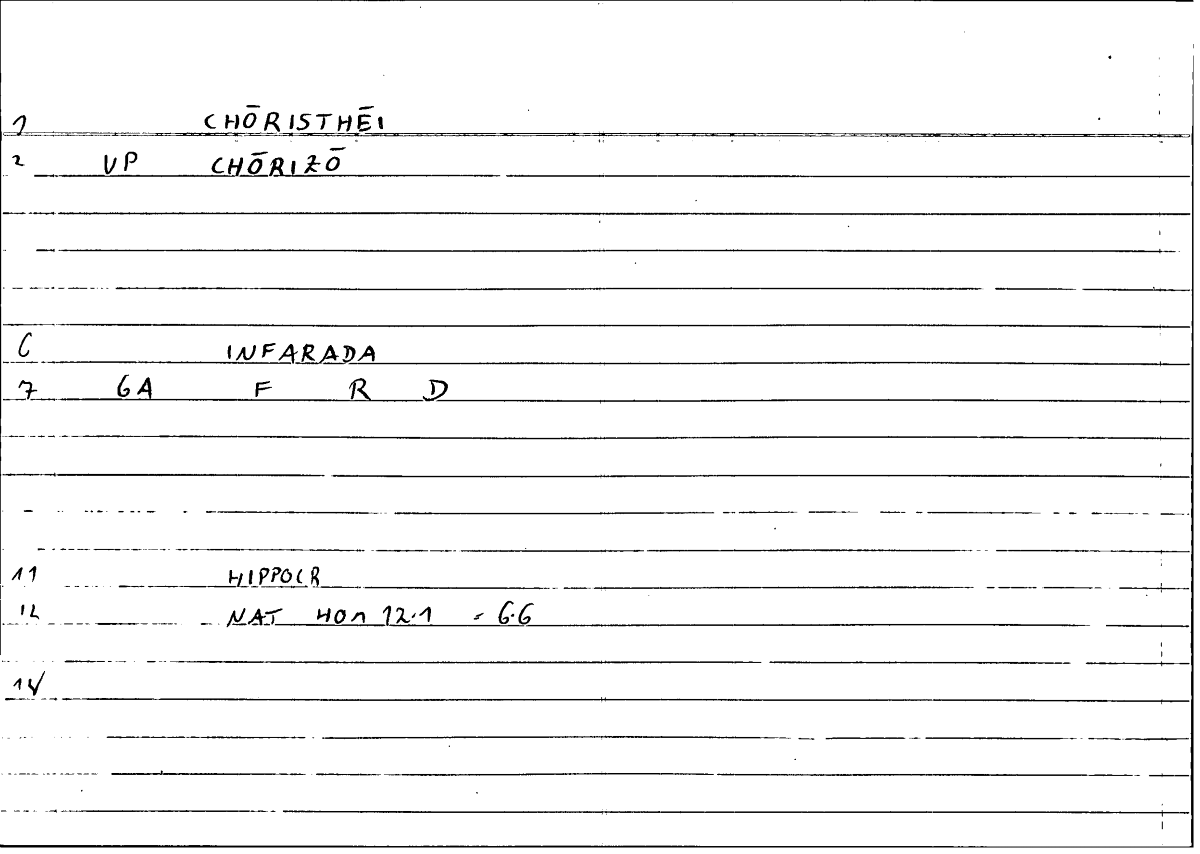 1 CHŌRISTHĒI
2 VP CHŌRIZŌ
6 INFARADA
7 6A F R D
11 HIPPOCR
12 NAT HOM 12.1 = 6.6
14